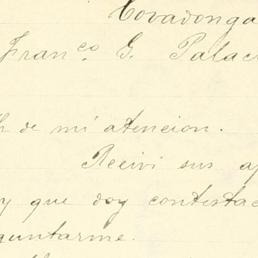 Covadonga
Fran.co G. Palac
de mi atencion.
Recivi sus ap
y que doy contestac
guntarme.